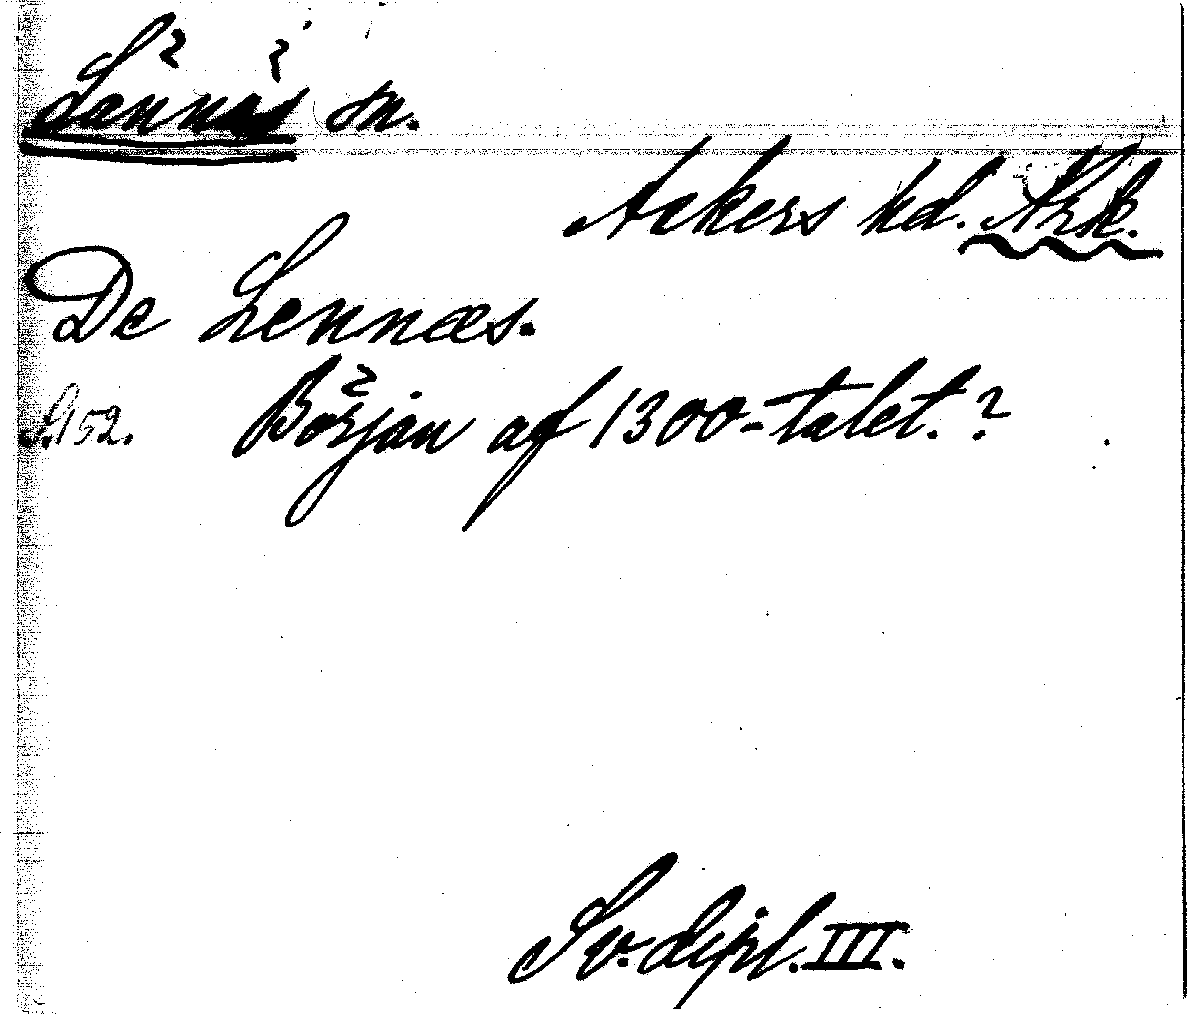 Lännäs sn.
Askers hd. Nrk.
De Lennæs.
S. 152. Början af 1300-talet.?
Sv. dipl. III.